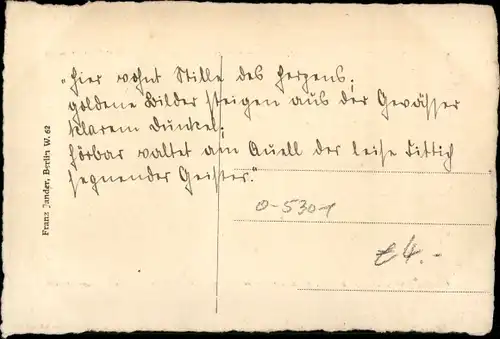 „Hier wohnt Stille des Herzens;
goldene Bilder steigen aus der Gewässer
klarem Dunkel;
hörbar waltet am Quell der leise Fittich
segnender Geister.“
Franz Jander, Berlin W. 62
0-530-1
€4.-